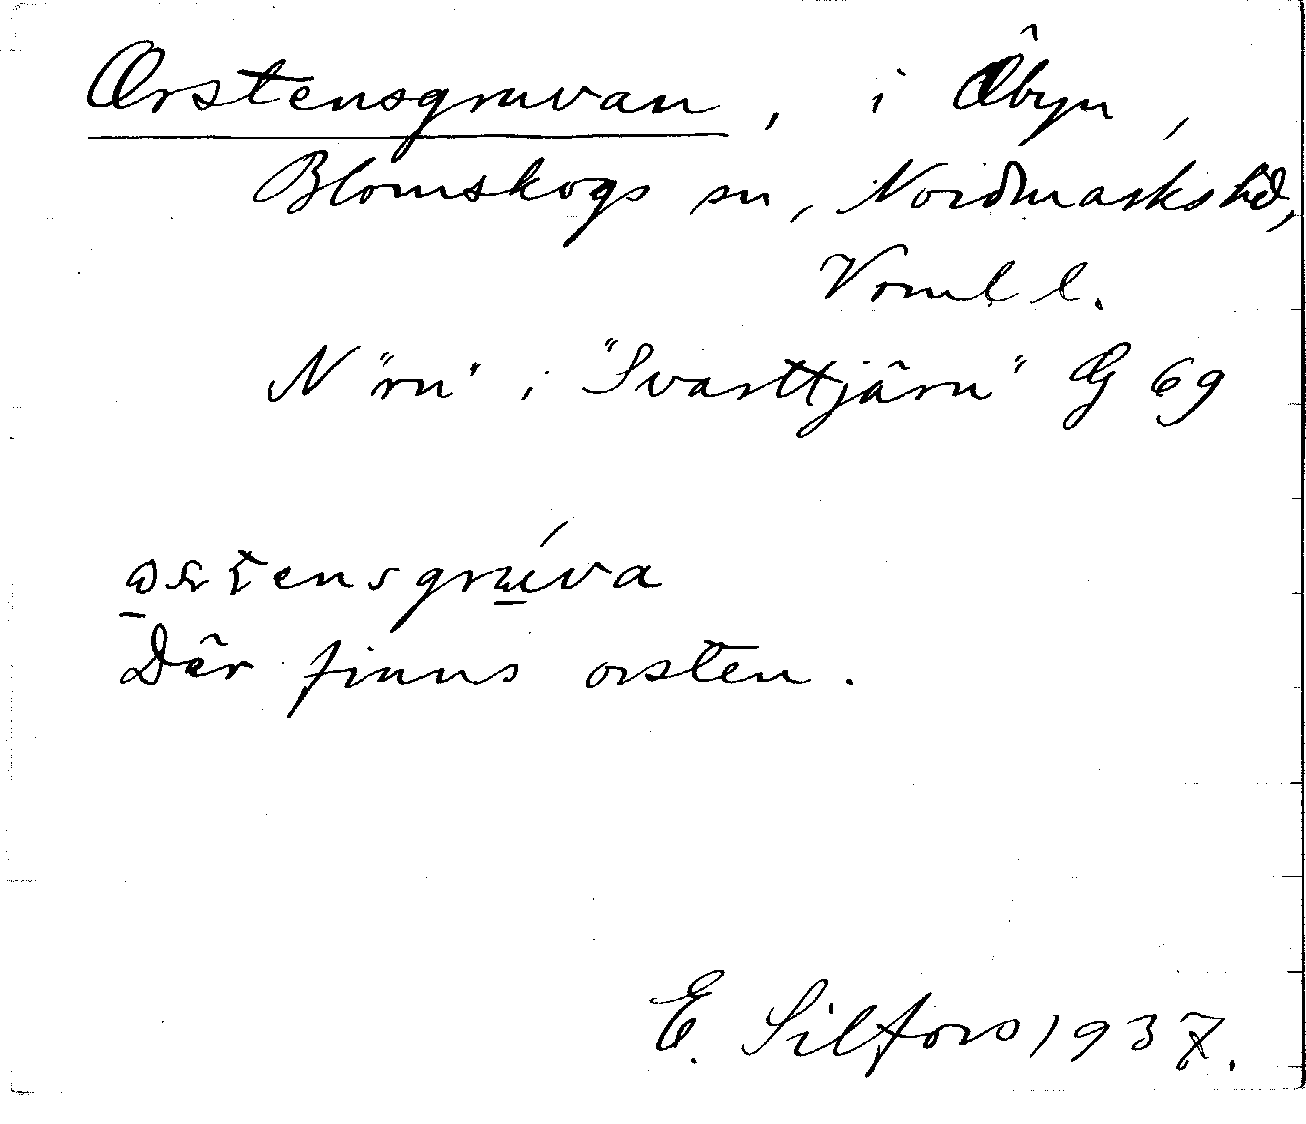 Orstensgruvan, i Öbyn,
Blomskogs sn, Nordmarks hd,
Värml l.
N "rn" i "Svarttjärn" G 69
Där finns orsten.
E. Silfors 1937.